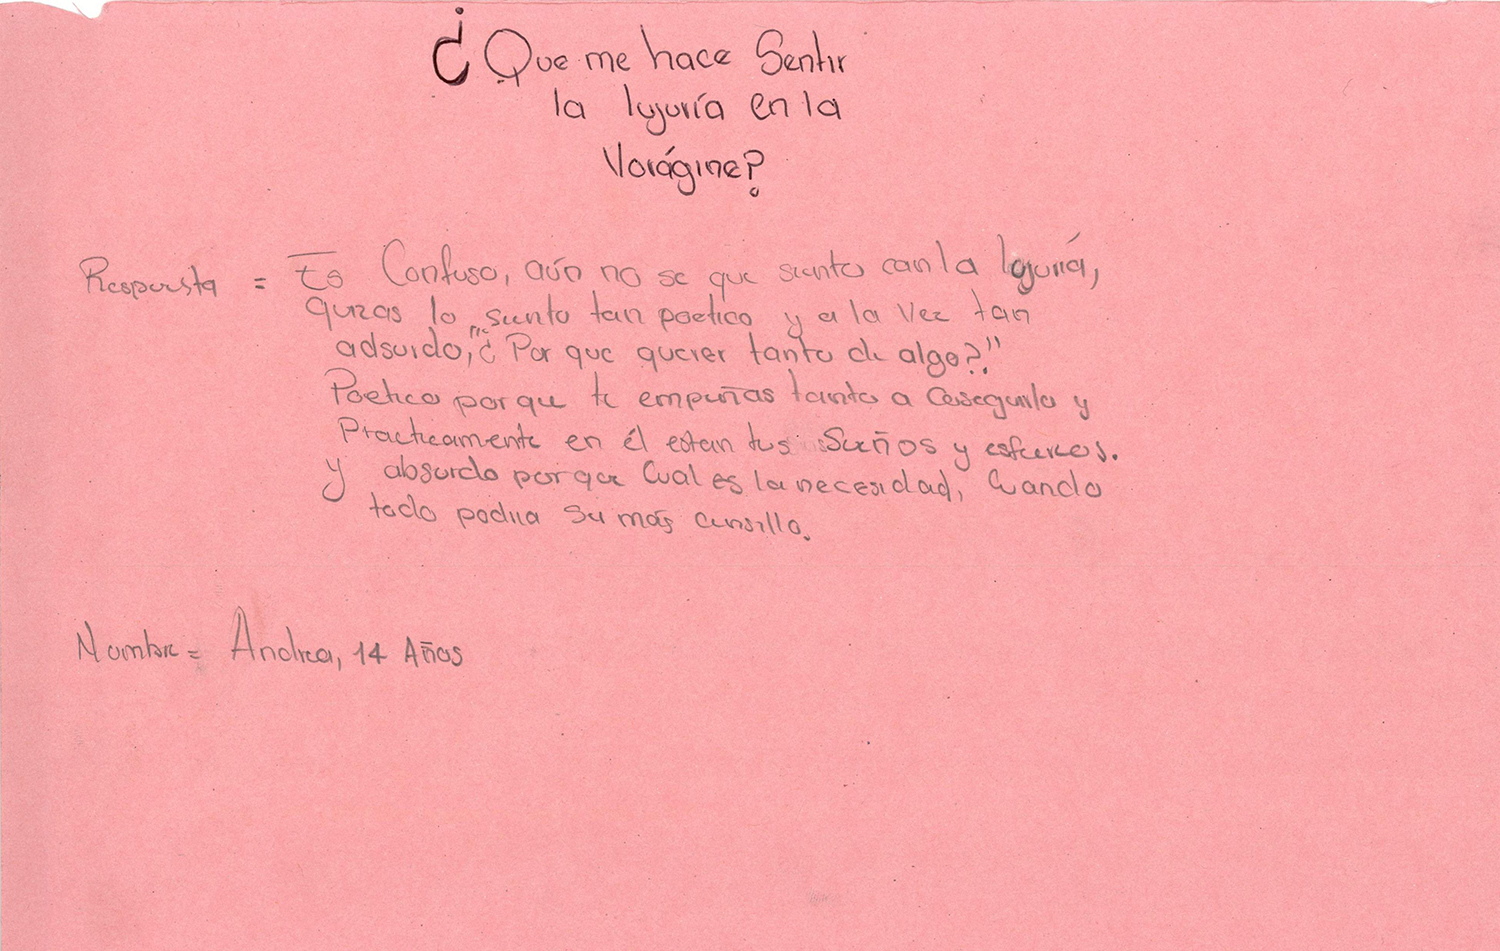 ¿Que me hace Sentir
la lujuría en la
Vorágine?
Respuesta = Es Confuso, aún no se que siento con la lujuriá,
quizas lo siento tan poetico y a la vez tan
adsurdo, "¿Por que querer tanto de algo?"
Poetico porque te empeñas tanto a coseguirlo y
Practicamente en él estan tus Sueños y esfuerzos.
y absurdo porque Cual es la necesidad, Cuando
todo podria ser más sensillo.
Nombre = Andrea, 14 Años